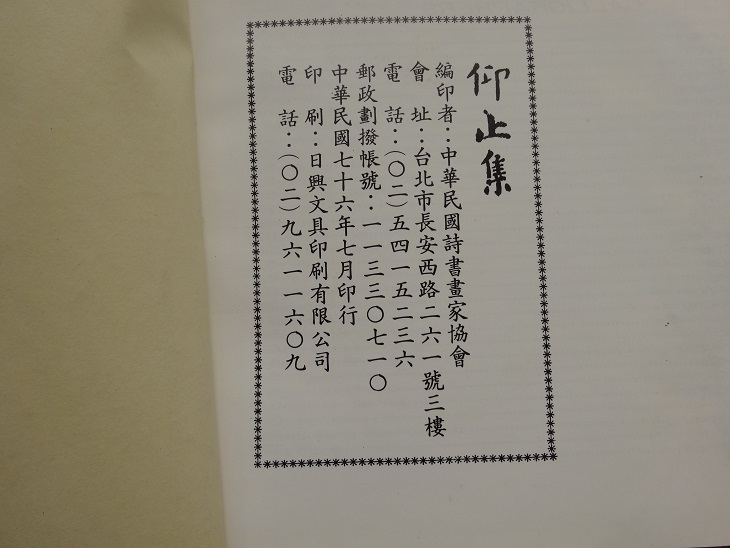 仰止集
編印者：中華民國詩書畫家協會
會　址：台北市長安西路二六一號三樓
電　話：（〇二）五四一五二三六
郵政劃撥帳號：一一三三〇七一〇
中華民國七十六年七月印行
印　刷：日興文具印刷有限公司
電　話：（〇二）九六一一六〇九